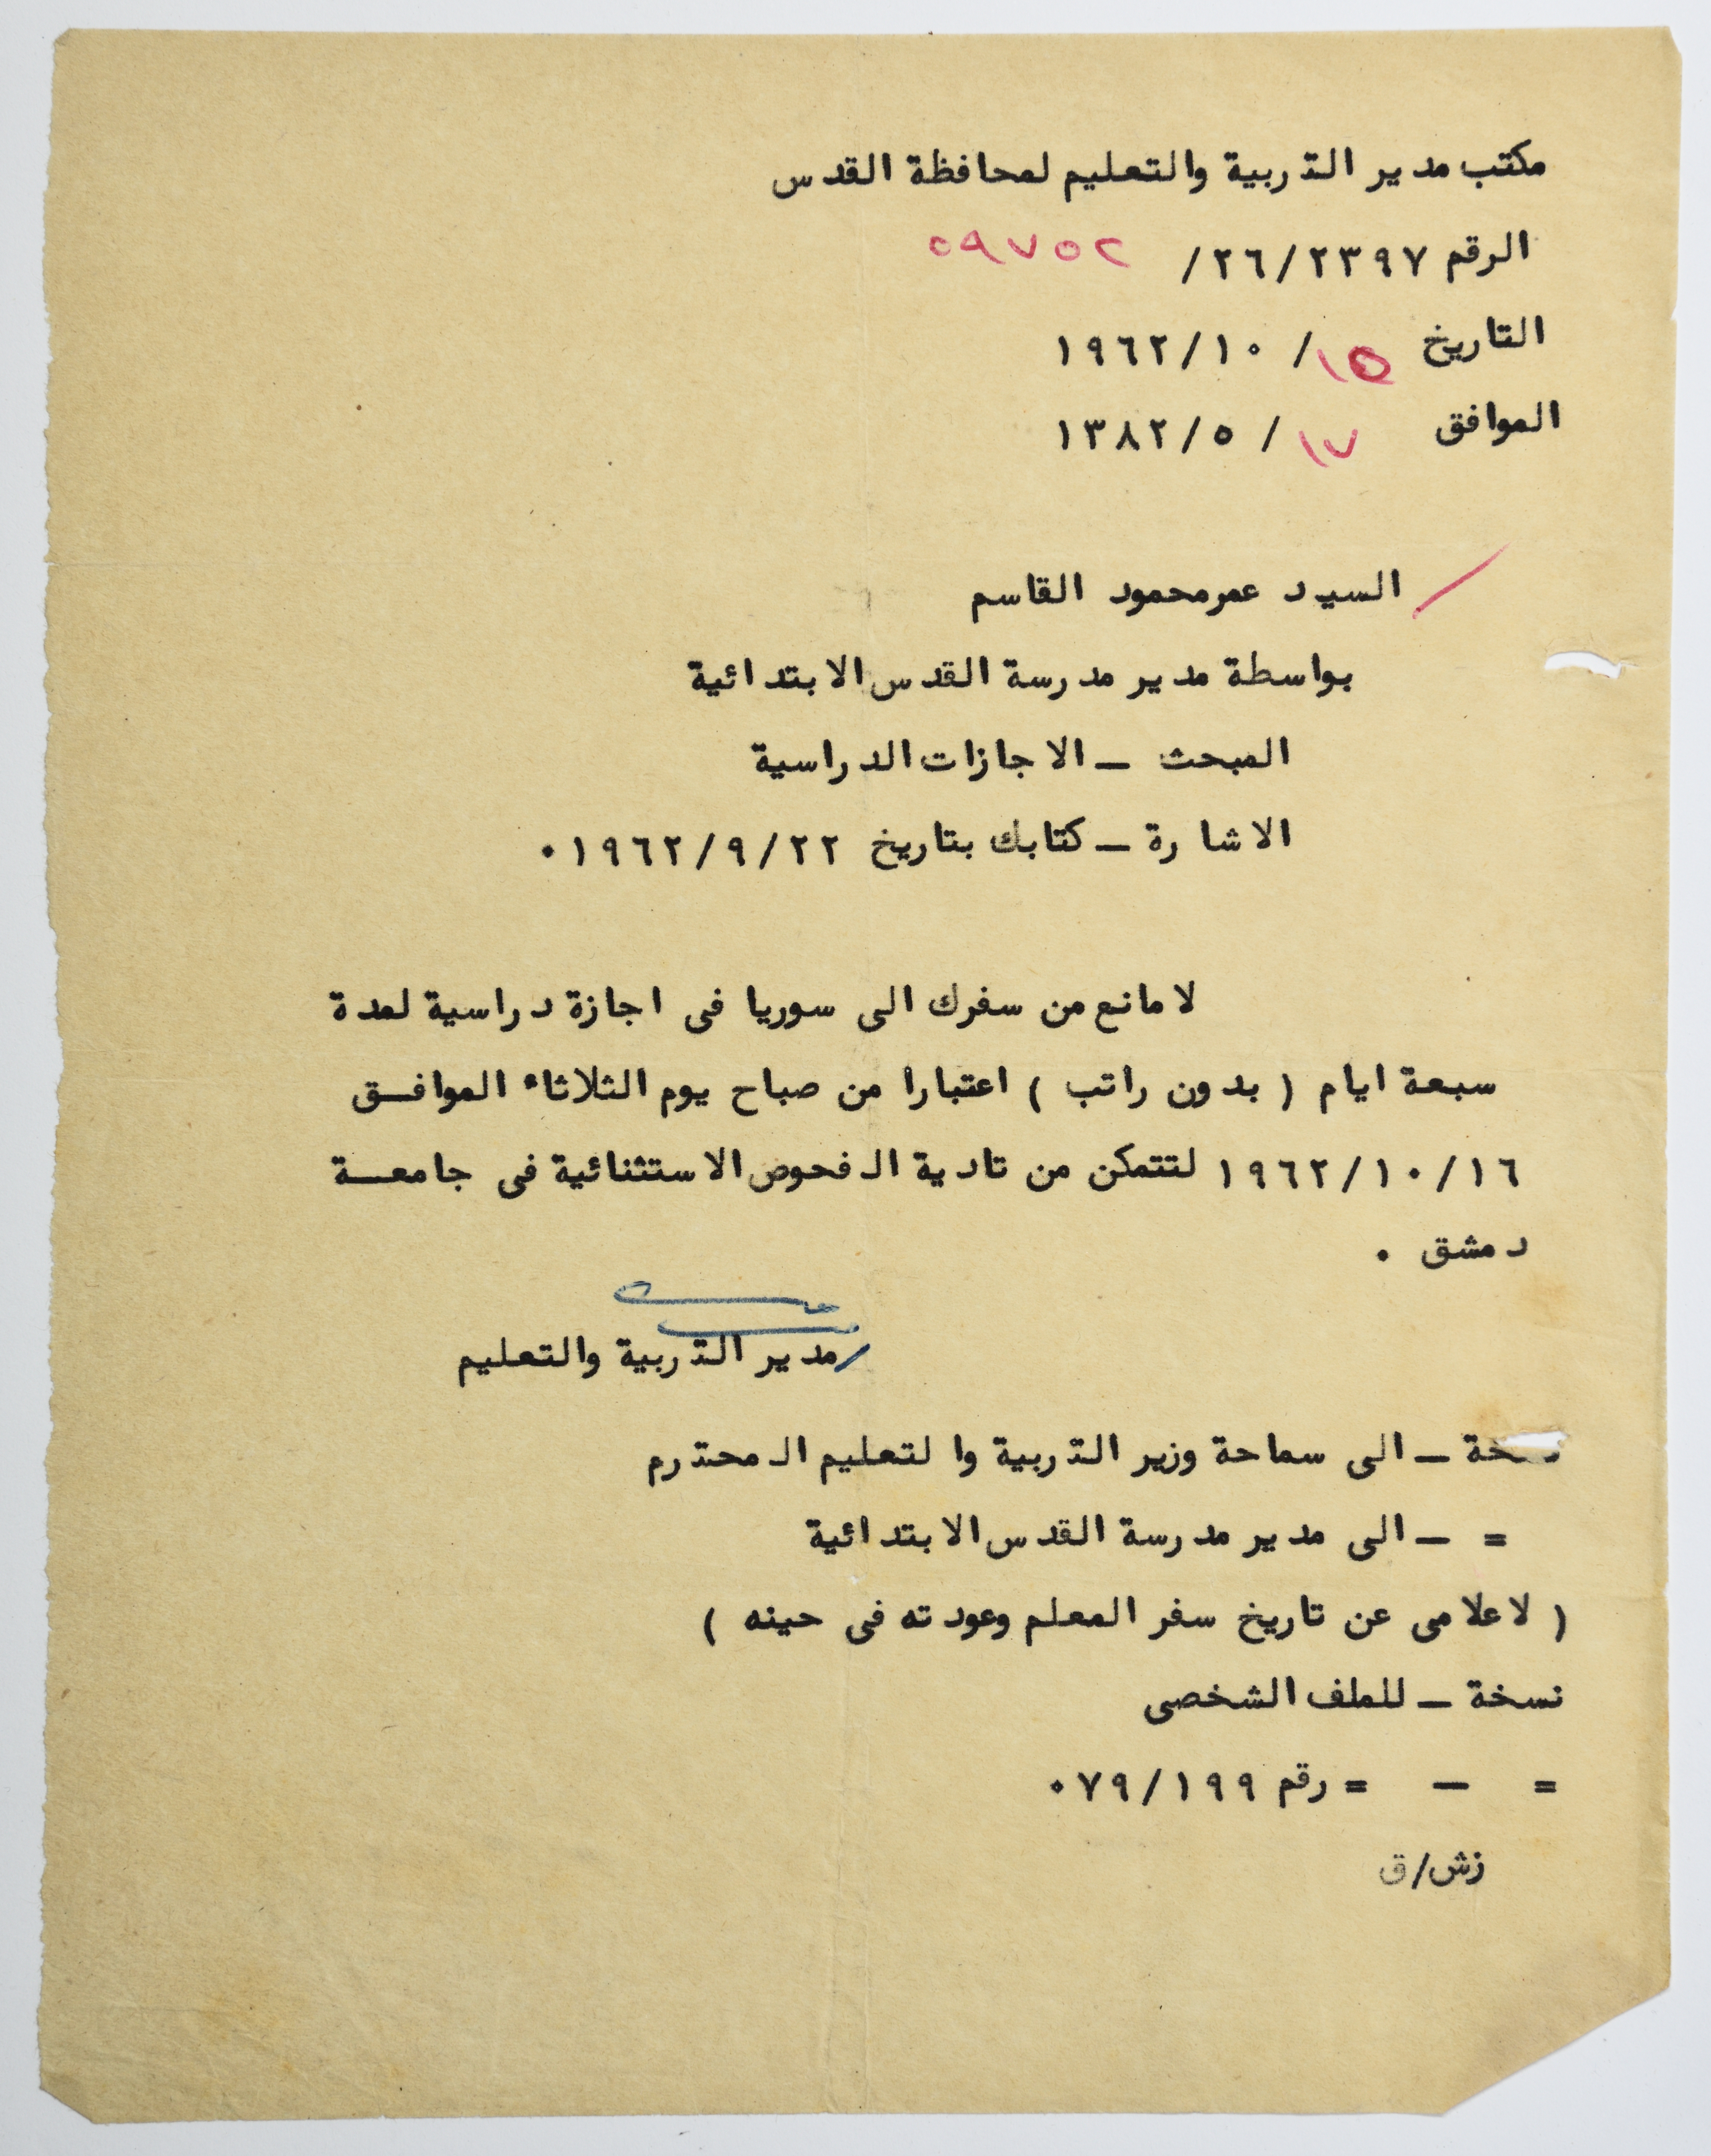 مكتب مدير التربية والتعليم لمحافظة القدس
الرقم ٢٦/٢٣٩٧/ ٥٩٧٥٢
التاريخ ١٥/ ١٩٦٢/١٠
الموافق ١٧/ ١٣٨٢/٥
السيد عمر محمود القاسم
بواسطة مدير مدرسة القدس الابتدائية
المبحث — الاجازات الدراسية
الاشارة — كتابك بتاريخ ١٩٦٢/٩/٢٢٠
لا مانع من سفرك الى سوريا فى اجازة دراسية لمدة
سبعة ايام ( بدون راتب ) اعتبارا من صباح يوم الثلاثاء الموافــق
١٩٦٢/١٠/١٦ لتتمكن من تادية الفحوص الاستثنائية فى جامعــة
دمشق ٠
/مدير التربية والتعليم
نسخة — الى سماحة وزير التربية والتعليم المحترم
= — الى مدير مدرسة القدس الابتدائية
( لاعلامى عن تاريخ سفر المعلم وعودته فى حينه )
نسخة — للملف الشخصى
= — = رقم ٧٩/١٩٩٠
زش/ق